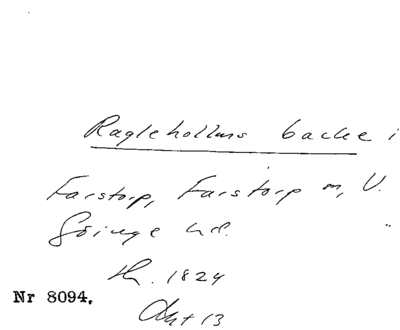 Raglehollens backe i
Farstorp, Farstorp sn, V.
Göinge hd.
1824
Nr 8094.
Akt 13